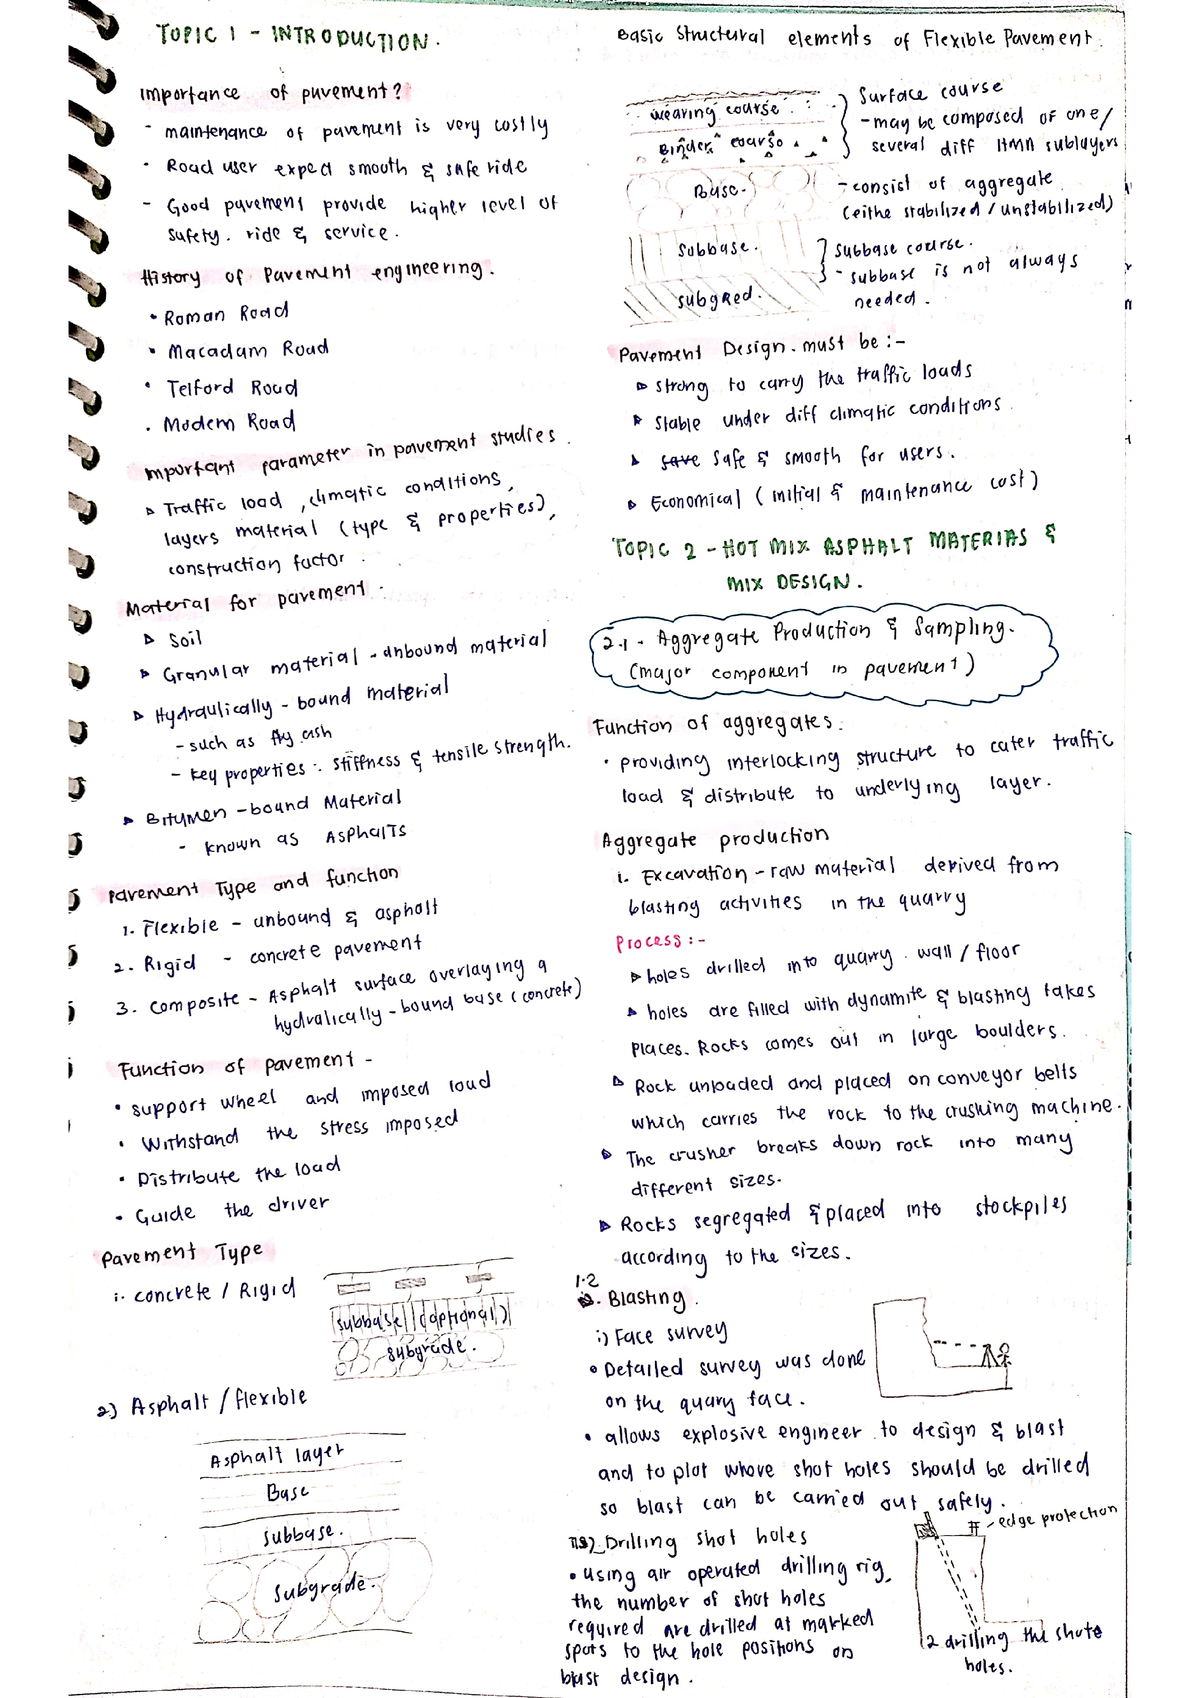 TOPIC 1 - INTRODUCTION.
Importance of pavement?
- maintenance of pavement is very costly
- Road user expect smooth & safe ride
- Good pavement provide higher level of
safety. ride & service.
History of Pavement engineering.
• Roman Road
• Macadam Road
• Telford Road
• Modern Road
Important parameter in pavement studies.
▷ Traffic load, climatic conditions,
layers material (type & properties),
construction factor.
Material for pavement.
▷ Soil
▷ Granular material - unbound material
▷ Hydraulically - bound material
- such as fly ash
- key properties: stiffness & tensile strength.
▷ Bitumen - bound Material
- known as Asphalts
Pavement Type and function
1. Flexible - unbound & asphalt
2. Rigid - concrete pavement
3. Composite - Asphalt surface overlaying a
hydralically - bound base (concrete)
Function of pavement -
• support wheel and imposed load
• Withstand the stress imposed
• Distribute the load
• Guide the driver
Pavement Type
i. concrete / Rigid
subbase (optional)
subgrade.
2) Asphalt / flexible
Asphalt layer
Base
subbase.
subgrade.
Basic Structural elements of Flexible Pavement.
wearing course
Binder course
Base.
Subbase.
subgred.
Surface course
- may be composed of one/
several diff HMA sublayers
- consist of aggregate
(eithe stabilized / unstabilized)
Subbase course.
- subbase is not always
needed.
Pavement Design. must be :-
▷ strong to carry the traffic loads
▷ Stable under diff climatic conditions.
▷ save safe & smooth for users.
▷ Economical (initial & maintenance cost)
TOPIC 2 - HOT MIX ASPHALT MATERIAS &
MIX DESIGN.
2.1 - Aggregate Production & Sampling.
(major component in pavement)
Function of aggregates.
• providing interlocking structure to cater traffic
load & distribute to underlying layer.
Aggregate production
i. Excavation - raw material derived from
blasting activities in the quarry
Process :-
▷ holes drilled into quarry wall / floor
▷ holes are filled with dynamite & blasting takes
places. Rocks comes out in large boulders.
▷ Rock unloaded and placed on conveyor belts
which carries the rock to the crushing machine.
▷ The crusher breaks down rock into many
different sizes.
▷ Rocks segregated & placed into stockpiles
according to the sizes.
1.2
Blasting.
i) Face survey
• Detailed survey was done
on the quary face.
• allows explosive engineer to design & blast
and to plot whove shot holes should be drilled
so blast can be carried out safely.
Drilling shot holes
• using air operated drilling rig,
the number of shot holes
required are drilled at marked
spots to the hole positions on
blast design.
- edge protection
2 drilling the shote
holes.